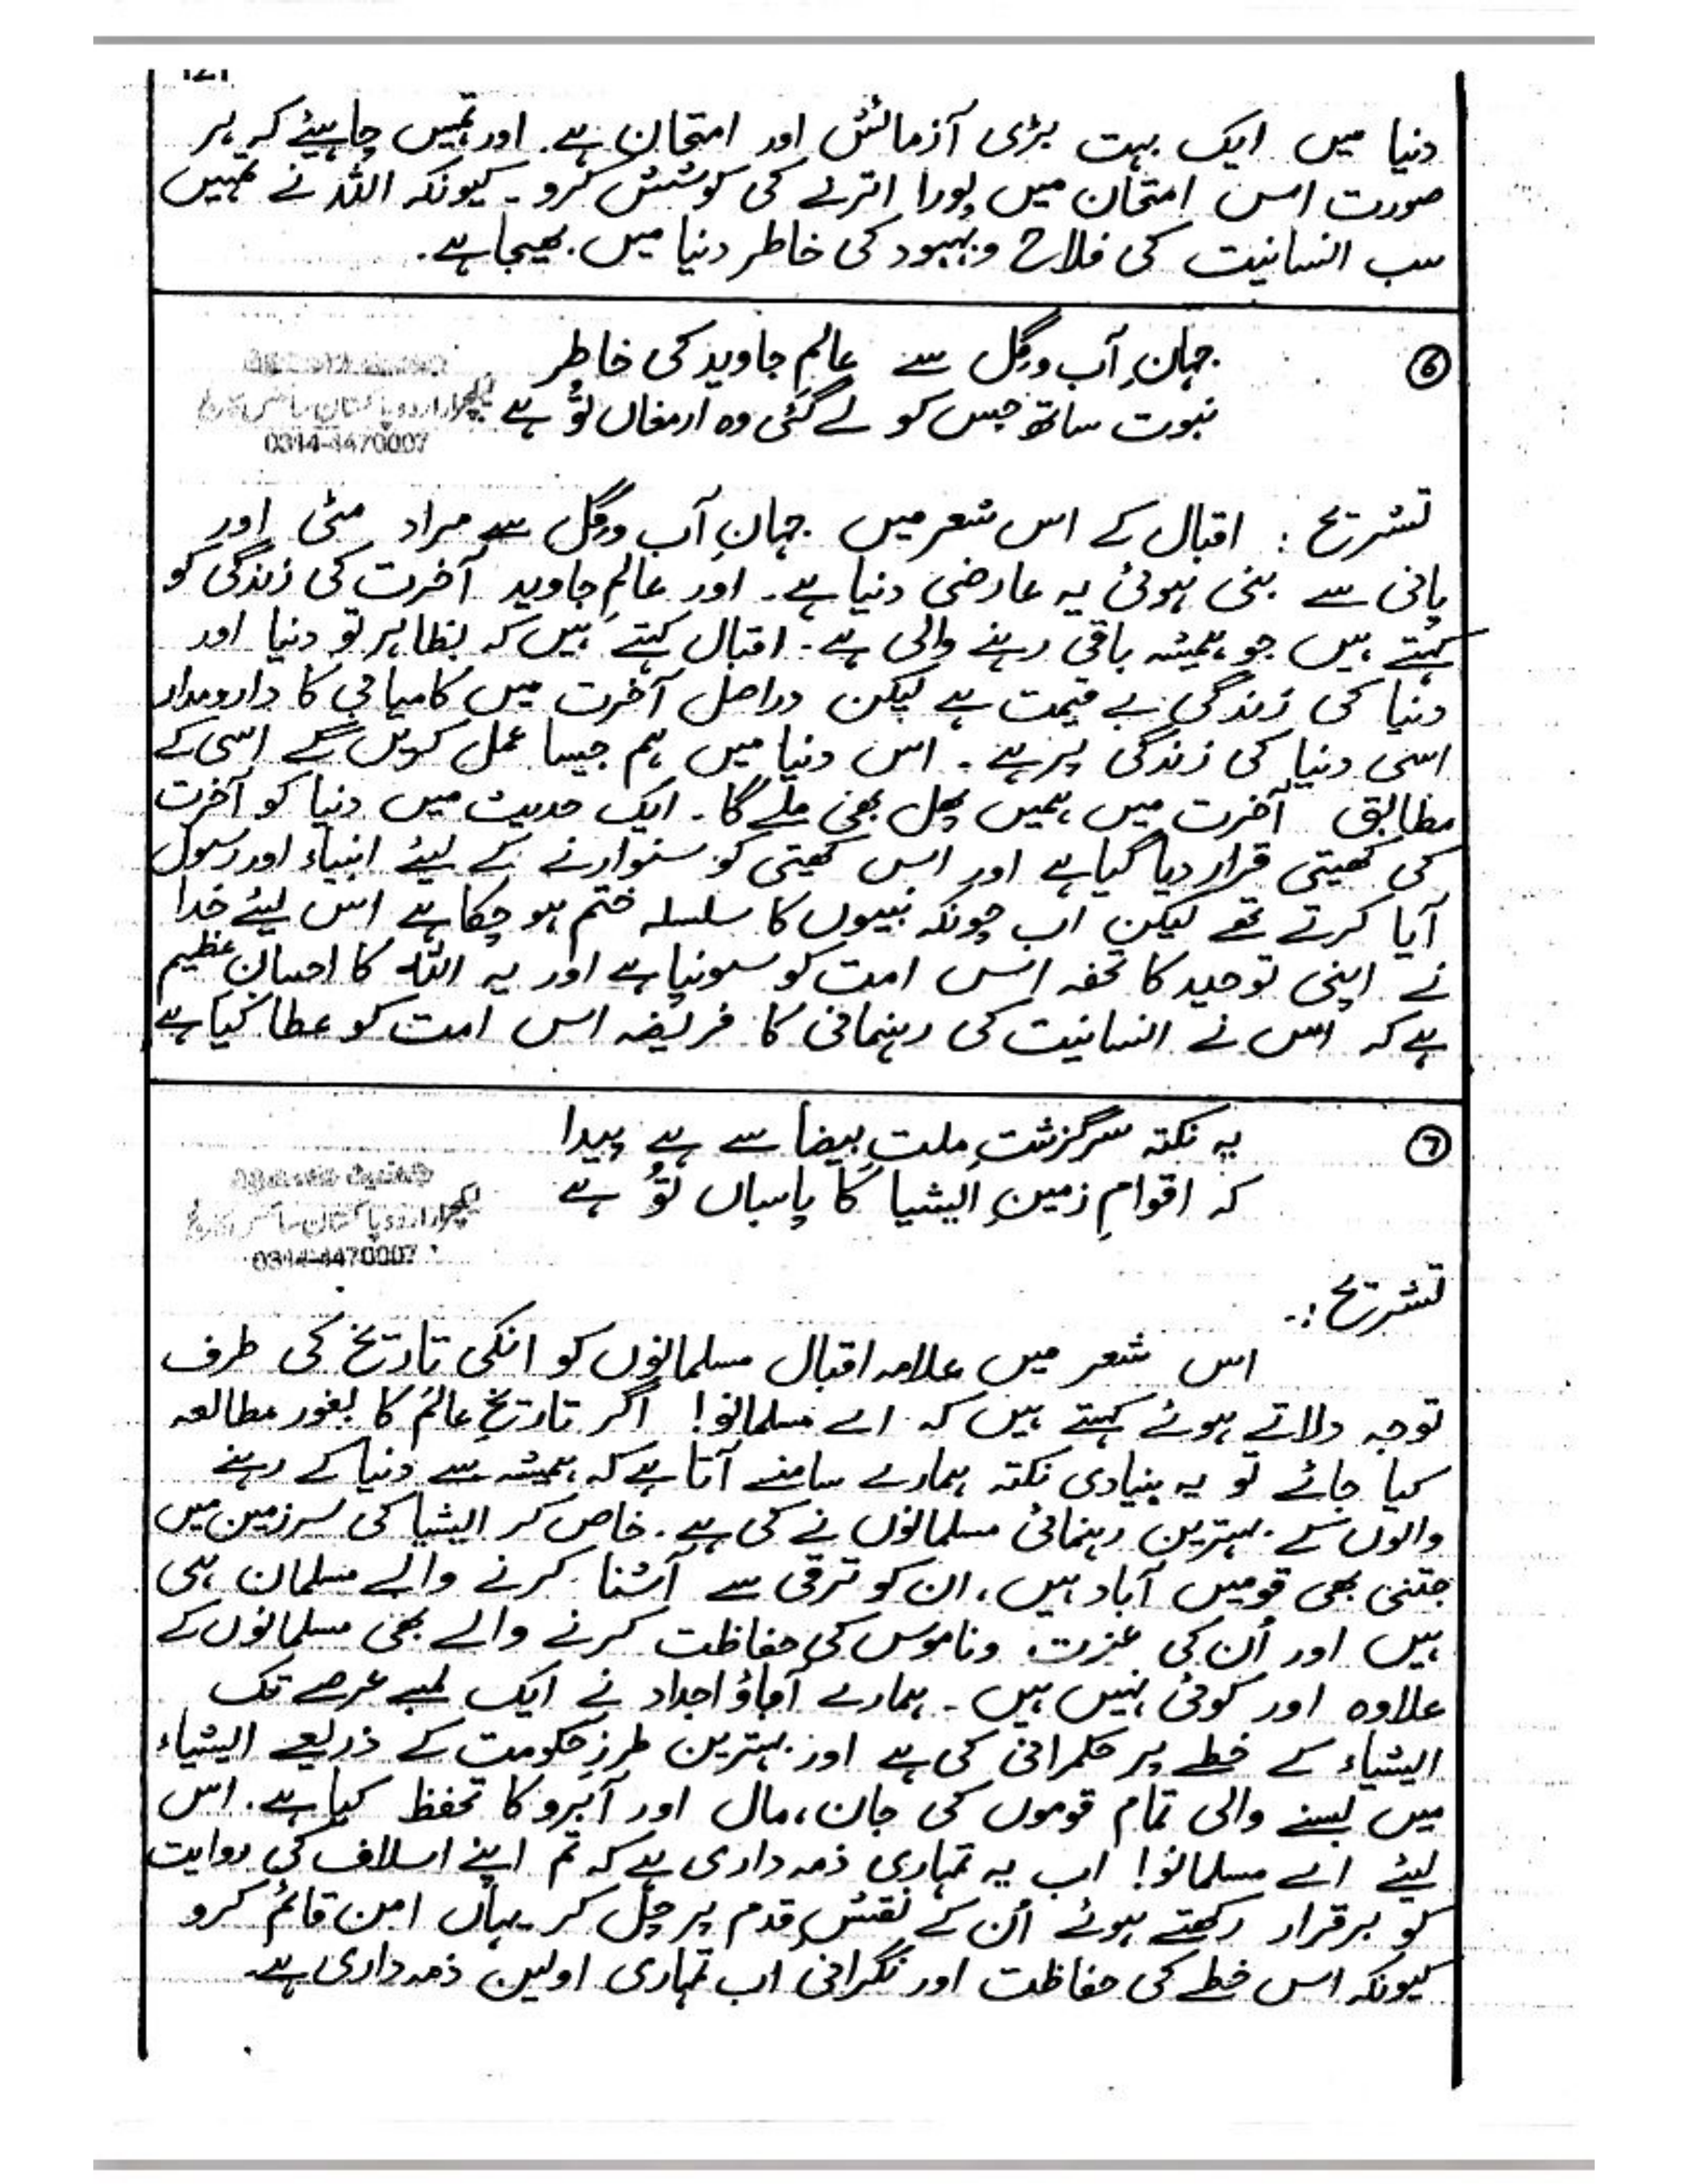 دنیا میں ایک بہت بڑی آزمائش اور امتحان ہے۔ اور تمہیں چاہیئے کہ ہر
صورت اس امتحان میں پورا اترنے کی کوشش کرو۔ کیونکہ اللہ نے تمہیں
سب انسانیت کی فلاح و بہبود کی خاطر دنیا میں بھیجا ہے۔
⑥
جہانِ آب و گِل سے عالمِ جاوید کی خاطر
نبوت ساتھ جس کو لے گئی وہ ارمغاں تُو ہے
لیکچرار اردو پاکستان سائنس
0344-4470007
تشریح : اقبال کے اس شعر میں جہانِ آب و گِل سے مراد مٹی اور
پانی سے بنی ہوئی یہ عارضی دنیا ہے۔ اور عالمِ جاوید آخرت کی زندگی کو
کہتے ہیں جو ہمیشہ باقی رہنے والی ہے۔ اقبال کہتے ہیں کہ بظاہر تو دنیا اور
دنیا کی زندگی بے قیمت ہے لیکن دراصل آخرت میں کامیابی کا دارومدار
اسی دنیا کی زندگی پر ہے۔ اس دنیا میں ہم جیسا عمل کریں گے اسی کے
مطابق آخرت میں ہمیں پھل بھی ملے گا۔ ایک حدیث میں دنیا کو آخرت
کی کھیتی قرار دیا گیا ہے اور اس کھیتی کو سنوارنے کے لیئے انبیاء اور رسول
آیا کرتے تھے لیکن اب چونکہ نبیوں کا سلسلہ ختم ہو چکا ہے اس لیئے خدا
نے اپنی توحید کا تحفہ اس امت کو سونپا ہے اور یہ اللہ کا احسانِ عظیم
ہے کہ اُس نے انسانیت کی رہنمائی کا فریضہ اس امت کو عطا کیا ہے
⑦
یہ نکتہ سرگزشتِ ملتِ بیضا سے ہے پیدا
کہ اقوامِ زمینِ ایشیا کا پاسباں تُو ہے
لیکچرار اردو پاکستان سائنس
0344-4470007
تشریح :۔
اس شعر میں علامہ اقبال مسلمانوں کو انکی تاریخ کی طرف
توجہ دلاتے ہوئے کہتے ہیں کہ اے مسلمانو! اگر تاریخِ عالم کا بغور مطالعہ
کیا جائے تو یہ بنیادی نکتہ ہمارے سامنے آتا ہے کہ ہمیشہ سے دنیا کے رہنے
والوں کے بہترین رہنمائی مسلمانوں نے کی ہے۔ خاص کر ایشیا کی سرزمین میں
جتنی بھی قومیں آباد ہیں، ان کو ترقی سے آشنا کرنے والے مسلمان ہی
ہیں اور اُن کی عزت وناموس کی حفاظت کرنے والے بھی مسلمانوں کے
علاوہ اور کوئی نہیں ہیں۔ ہمارے آباؤ اجداد نے ایک لمبے عرصے تک
ایشیاء کے خطے پر حکمرانی کی ہے اور بہترین طرزِ حکومت کے ذریعے ایشیاء
میں بسنے والی تمام قوموں کی جان، مال اور آبرو کا تحفظ کیا ہے۔ اس
لیئے اے مسلمانو! اب یہ تمہاری ذمہ داری ہے کہ تم اپنے اسلاف کی روایت
کو برقرار رکھتے ہوئے اُن کے نقشِ قدم پر چل کر یہاں امن قائم کرو
کیونکہ اس خطے کی حفاظت اور نگرانی اب تمہاری اولین ذمہ داری ہے۔